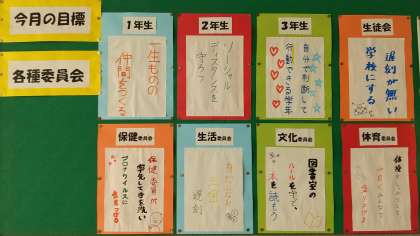 今月の目標
各種委員会
1年生
一生ものの
仲間をつくる
2年生
ソーシャル
ディスタンスを
守ろう
3年生
自分で判断して
行動できる学年
生徒会
遅刻が無い
学校にする
保健委員会
保健委員が
率先して手を洗い
コロナウイルスに
生活委員会
遅刻
文化委員会
図書室の
ルールを守って、
本を読もう
体育委員会